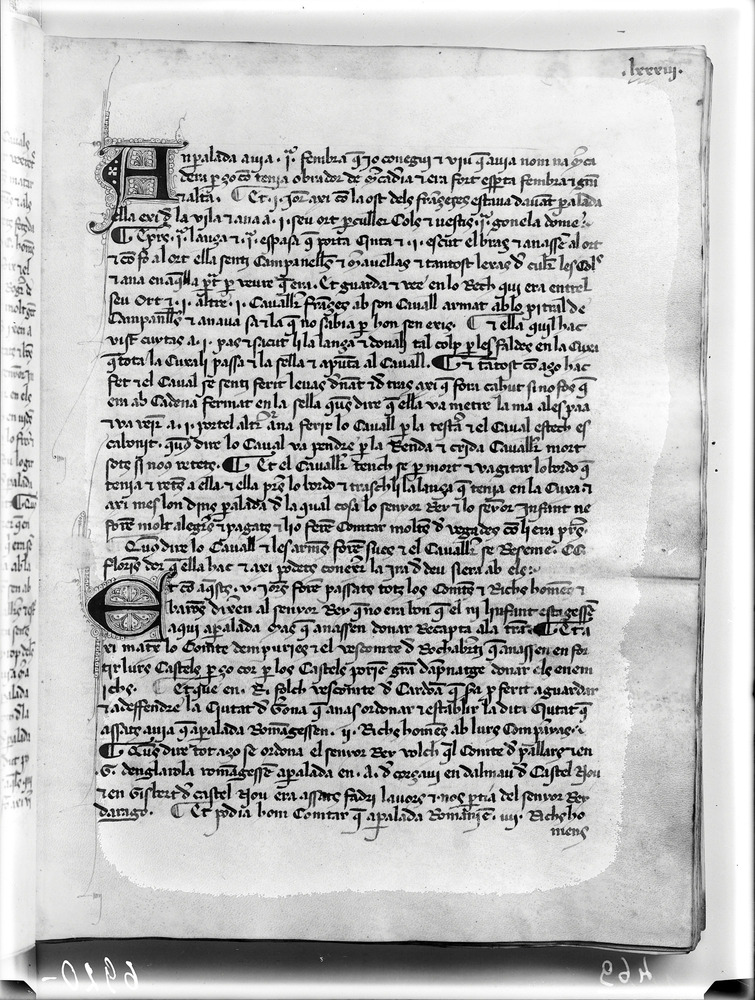 .lxxxiii.
An peralada auia .ia. fembra q̄ yo conegui e viu q̄ auia nom na m̄ca
dera p̄ ço co tenia obrador de m̄caderia e era fort esp̄ta fembra e grā
e alta. Et .i. jorn axi co la ost dels frāçeses estaua dauāt p̄alada
ella exi d̄ la vila e ana a .i. seu ort p̄ culler Cols e vestis .ia. gonela dome
e pres .ia. lança e .ia. espasa q̄ porta Cinta e .i. escut el braç e anassen al ort
e co fo al ort ella senti Campanelles e m̄auellas e tantost leuas d̄ cullir les Cols
e ana en aq̄lla p̄t p̄ veure q̄ era. Et guarda e vee en lo Rech qui era entrel
seu Ort e .i. altre .i. Cauall̄r frāçes ab son Cauall armat ab lo pitral de
Campanell̄s e anaua sa e la q̄ no sabia p̄ hon sen exis. e ella quil hac
vist cuytas a .i. pas e sacut li la lança e donali tal colp p̄ les faldes en la Cuxa
q̄ tota la Cuxali passa e la sella e apūta al Cauall. e tātost co aço hac
fet e el Caual se senti ferit leuas dauāt e d̄ tras axi q̄ fora cabut si no fos q̄
era ab Cadena fermat en la sella queus dire q̄ ella va metre la ma a lespaa
e va venir a .i. portel altr̄ e ana ferir lo Cauall p̄ la testa e el Caual estech es
cabonit. queus dire lo Caual va pendre p̄ la Renda e crida Cauall̄r mort
sots si nous retets. Et el Cauall̄r tench se p̄ mort e va gitar lo bordo q̄
tenia e retes a ella e ella pres lo bordo e trasch li la lança q̄ tenia en la Cuxa e
axi mes lon dins p̄alada d̄ la qual cosa lo senyor Rey e lo senyor Infant ne
forē molt alegres e pagats e li o feerē Comtar moltes d̄ vegades co li era p̄s.
Queus dire lo Cauall e les armes forē sues e el Cauall̄r se Reseme .CC.
florins dor q̄ ella hac e axi podets conexer la ira d̄ deu si era ab els
Et co aq̄sts .v. jorns forē passats tots los Comtes e Richs homens e
barons dixen al senyor Rey q̄ no era bon q̄ el ni linfant estegessē
aqui a p̄alada mas q̄ anassen donar Recapta a la tr̄a. Et a
xi mateix lo Comte dempuries e el vescomte d̄ Rochab̄ti q̄ anassen enfor
tir lurs Castels p̄ ço cor p̄ los Castels poriē gran dāpnatge donar els enem
ichs. Et que en .R. folch vescomte d̄ Cardōa q̄ sa p̄ferit a guardar
e a deffendre la Ciutat d̄ Gerona q̄ anas ordonar e establir la dita Ciutat q̄
assats auia q̄ a p̄alada Romāgessen .ii. Richs homens ab lurs Companyas.
Queus dire tot aço se ordona el senyor Rey volch q̄l Comte d̄ pallars e en
.G. denglarola romāgessē a p̄alada en .A. d̄ corçaui en dalmau d̄ Castel Nou
e en Gisbert d̄ castel Nou era assats fadri lauors e nos p̄tia del senyor Rey
darago. Et podia hom Comtar q̄ a p̄alada Romāiē .iiii. Richs ho
mens
6920- 469